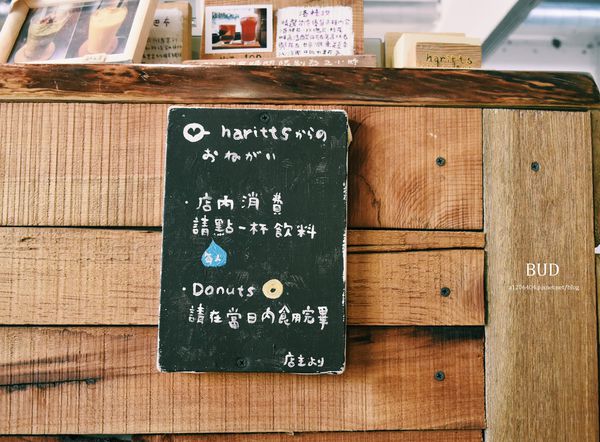 haritts
haritts からの
おねがい
・店内消費
請點一杯飲料
每人
・Donuts
請在當日內食用完畢
店主より
BUD
a1206404.pixnet.net/blog